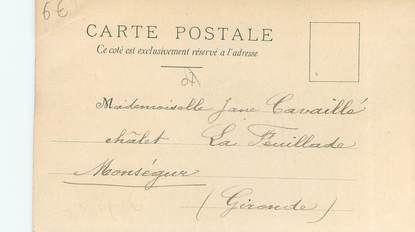 6€
CARTE POSTALE
Ce coté est exclusivement réservé a l'adresse
Mademoiselle Jane Cavaillé
châlet La Feuillade
Monségur
(Gironde)